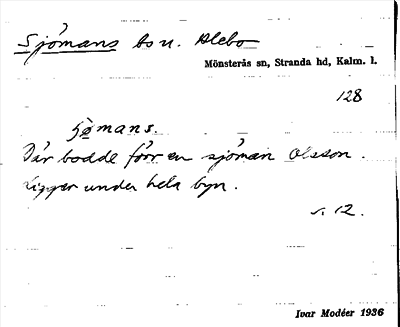 Sjömans bo u. Alebo
Mönsterås sn, Stranda hd, Kalm. l.
128
sjömans.
Där bodde förr en sjöman Olsson.
Ligger under hela byn.
s. 12.
Ivar Modéer 1936